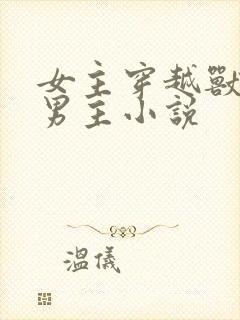 女主穿越獸
男主小説
溫儀